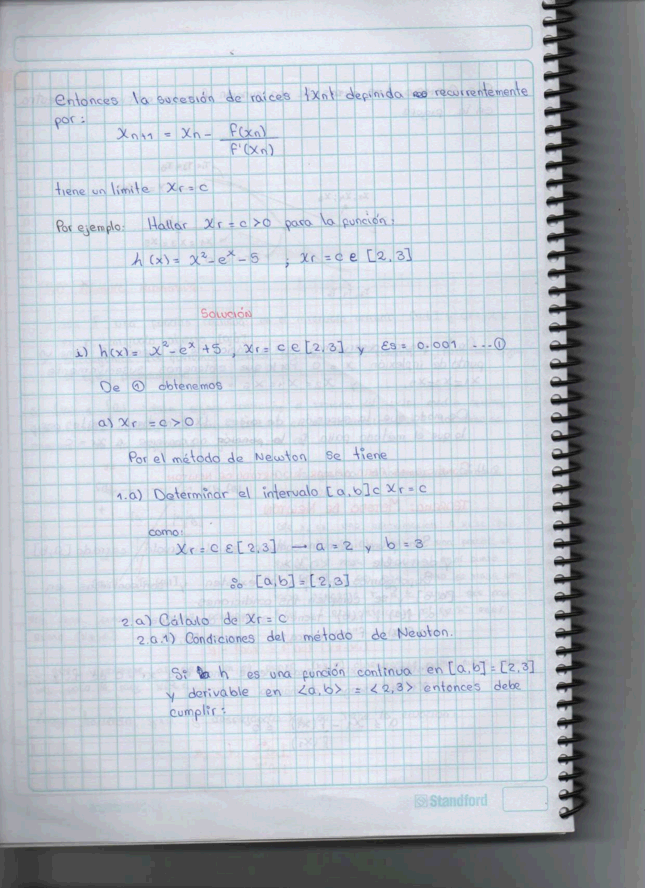 Entonces la sucesión de raíces {xn} definida recurrentemente
por:
Xn+1 = Xn - f(xn) / f'(xn)
tiene un límite Xr = c
Por ejemplo: Hallar Xr = c > 0 para la función:
h(x) = x² - eˣ - 5 ; Xr = c ∈ [2,3]
Solución
i) h(x) = x² - eˣ + 5, Xr = c ∈ [2,3] y Es = 0.001 ...①
De ① obtenemos
a) Xr = c > 0
Por el método de Newton se tiene
1.a) Determinar el intervalo [a,b] c Xr = c
como:
Xr = c ε [2,3] → a = 2 y b = 3
∴ [a,b] = [2,3]
2.a) Cálculo de Xr = c
2.a.1) Condiciones del método de Newton.
Si h es una función continua en [a,b] = [2,3]
y derivable en <a,b> = <2,3> entonces debe
cumplir:
Standford